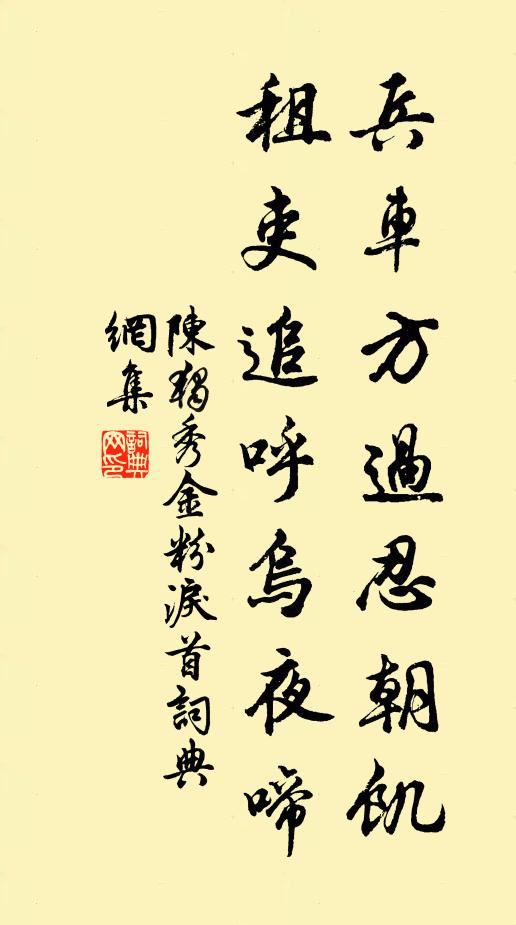 兵車方過忍朝飢
租吏追呼烏夜啼
陳獨秀金粉淚首詞典
網集
詞典網印